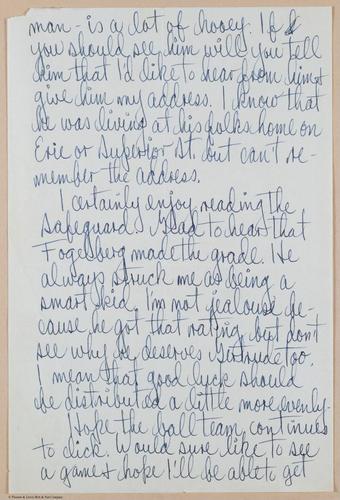 man - is a lot of hooey. If
you should see him will you tell
him that I'd like to hear from him &
give him my address. I know that
he was living at his folks home on
Erie or Superior St. but can't re-
member the address.
I certainly enjoy reading the
Safeguard. Glad to hear that
Fogelberg made the grade. He
always struck me as being a
smart kid. I'm not jealouse be-
cause he got that rating, but don't
see why he deserves Gertrude too.
I mean that good luck should
be distributed a little more evenly.
Hope the ball team continues
to click. Would sure like to see
a game & hope I'll be able to get